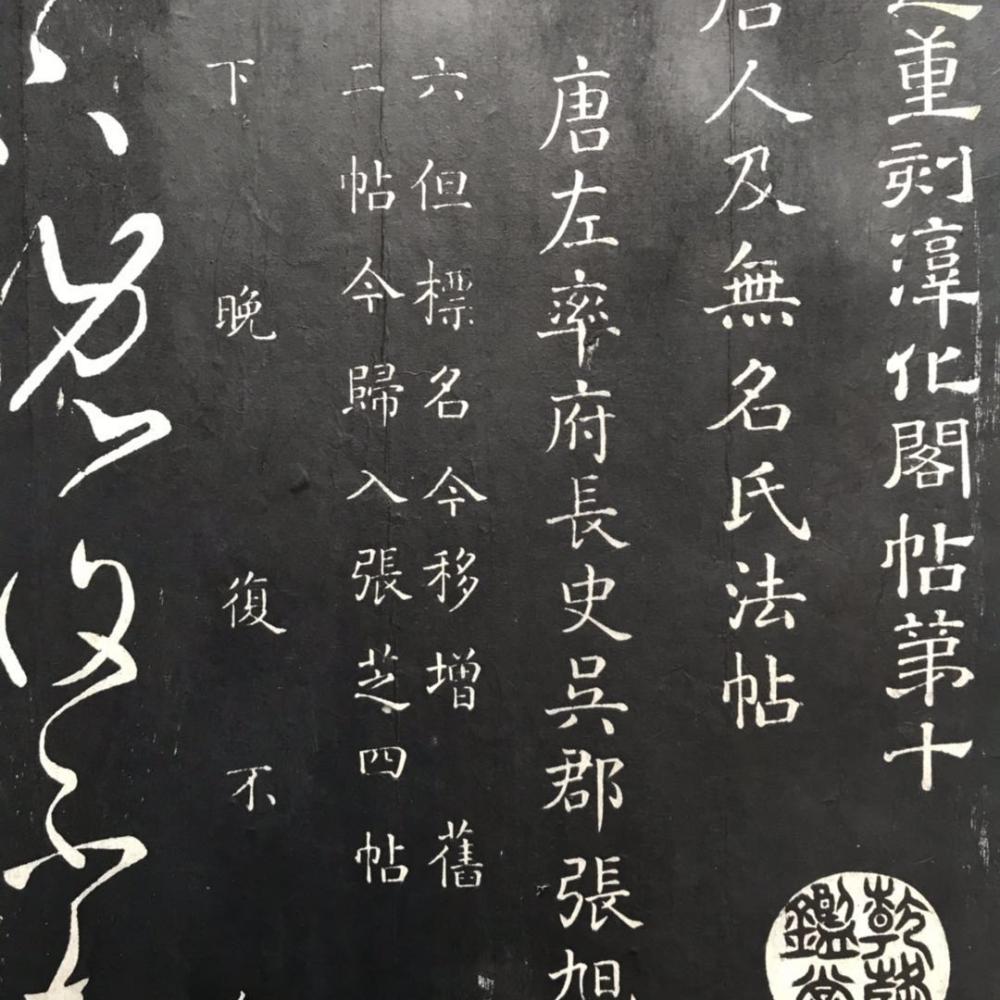 重刻淳化閣帖第十
人及無名氏法帖
唐左率府長史吳郡張旭
六但標名今移增舊
二帖今歸入張芝四帖
下晚復不
晚復不
乾
鑑